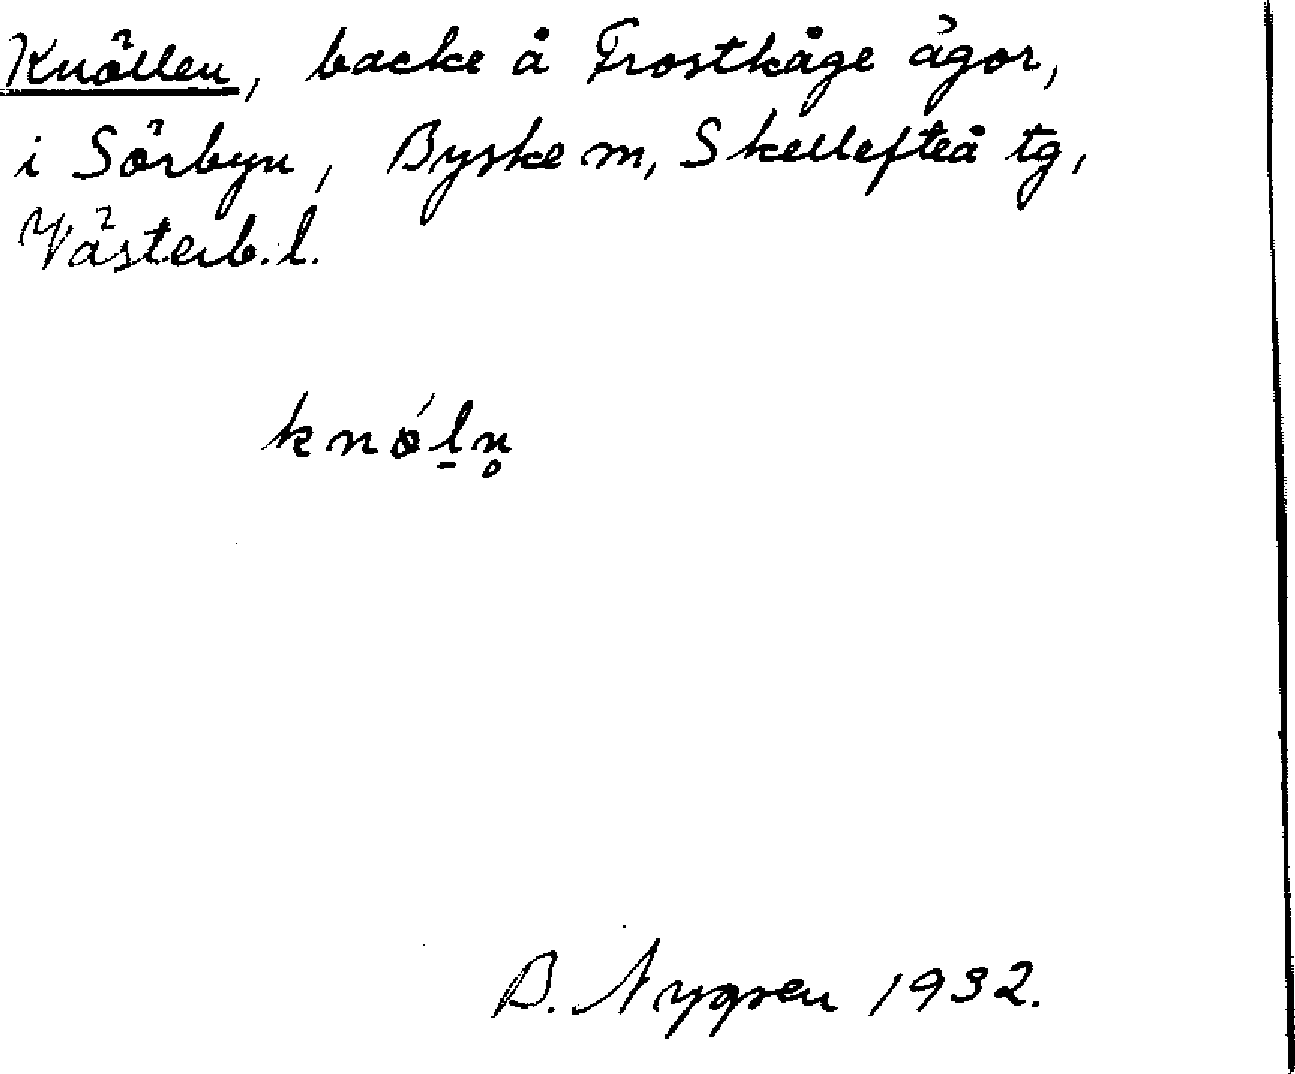 Knöllen, backe å Frostkåge ägor,
i Sörbyn, Byske m, Skellefteå tg,
Västerb. l.
knól̠n̥
B. Nygren 1932.